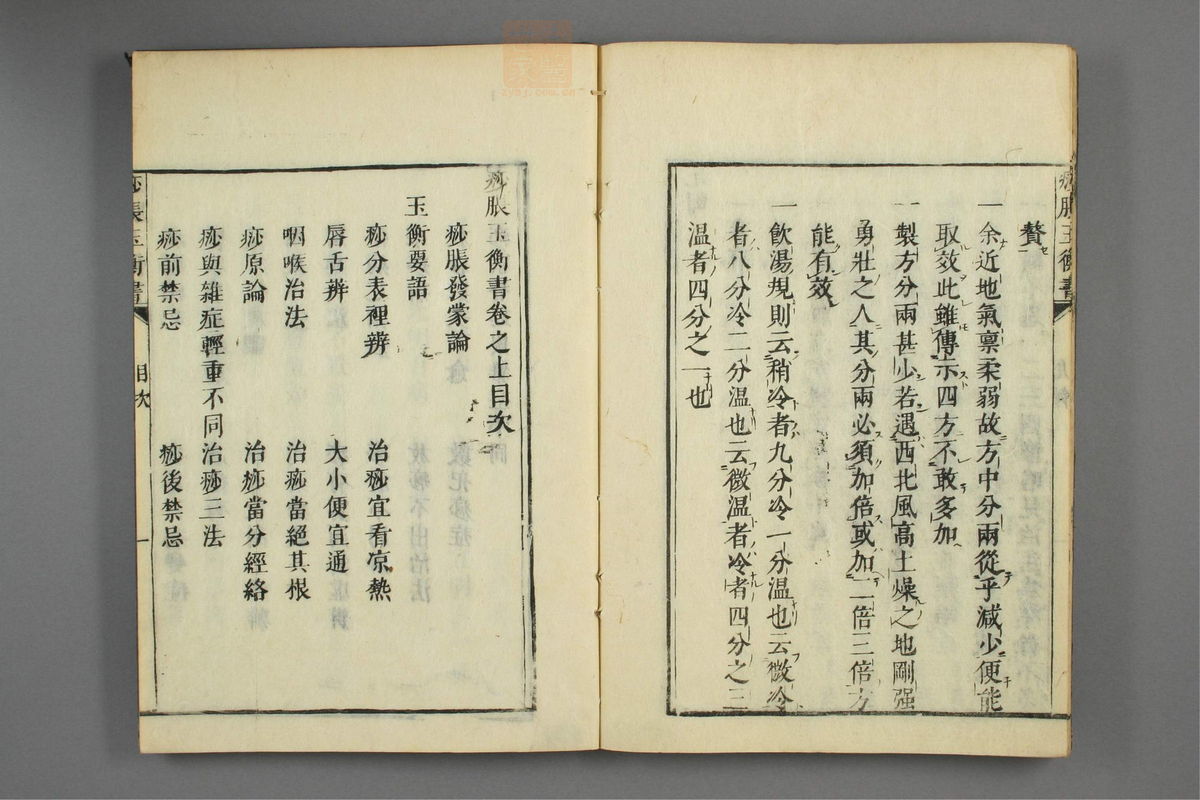 痧脹玉衡書
贅
一余近地氣禀柔弱故方中分兩從乎減少便能
取效此雖傳示四方不敢多加
一製方分兩甚少若遇西北風高土燥之地剛强
勇壯之人其分兩必須加倍或加二倍三倍方
能有效
一飲湯規則云稍冷者九分冷一分温也云微冷
者八分冷二分温也云微温者冷者四分之三
温者四分之一也
痧脹玉衡書卷之上目次
痧脹發蒙論
玉衡要語
痧分表裡辨 治痧宜看凉熱
唇舌辨 大小便宜通
咽喉治法 治痧當絕其根
痧原論 治痧當分經絡
痧與雜症輕重不同 治痧三法
痧前禁忌 痧後禁忌
痧脹玉衡書 目次 一